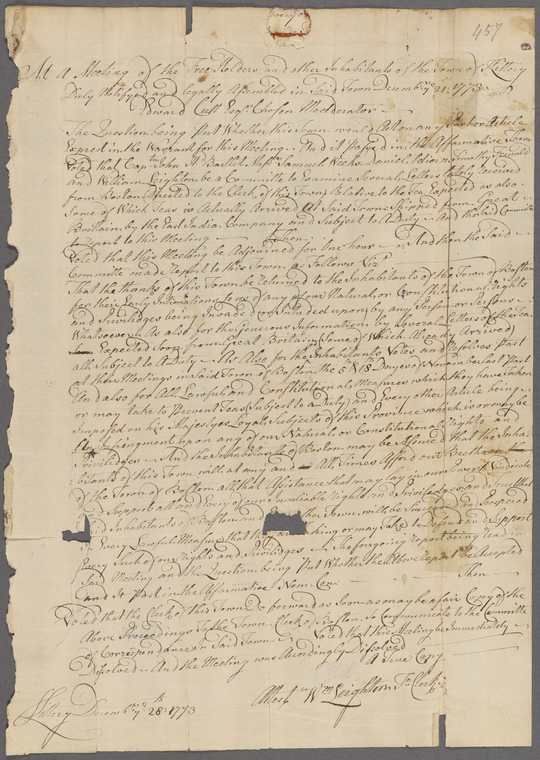 457
At a Meeting of the Free Holders and other Inhabitants of the Town of Kittery
Duly Notifyed and legally Assembled in Said Town Decembr ye 21: 1773
Edward Cutt Esqr. Chosen Moderator
The Question being Put Whether this Town would Act on any Particular Article
Expres'd in the Warrant for this Meeting And it Passed in the Affirmative Then
Voted that Capt. John Samuel Weeks Daniel
and William Leighton be a Committe to Examine Several Letters lately Received
from Boston Directed to the Clerk of this Town Relative to the Teas Expected as also
Some of Which Teas is Actually Arrived at Said Town Shipped from Great
Britain by the East India Company and Subject to a Duty And the Said Committe
to Report to this Meeting Then
Voted that this Meeting be Adjourned for hour And then the Said
Committe made Report to this Town as Follows Vizt
That the thanks of this Town be returned to the Inhabitants of the Town of Boston
for their Early Information to us of any of our Natural or Constitutional Rights
and Priviledges being Invaded or Intruded upon by any Person or Persons
Whatsoever As also for the Generous Information by Several Letters of the Teas
Expected Soon from Great Britain Some of Which Already Arrived
all Subject to A Duty As Also for the Inhabitants Votes and Resolves Past
at their Meetings in Said Town of Boston the 5 & 18 Dayes of November last Past
And also for All Lawful and Constitutional Measures which they have taken
or may take to Prevent Teas (Subject to a Duty) and Every other Article being
Imposed on his Majestyes Loyal Subjects of this Province which is or may be
An Infringment upon any of our Natural or Constitutional Rights and
Priviledges And the Inhabitants of Boston may be Assured that the Inha-
bitants of this Town will at any and All Times Afford our Brethren
of the Town of Boston all that Assistance that may lay in our Power to Vindicate
and Support all and Every of our Invaluable Rights and Priviledges and
Inhabitants of Boston and other Town will be and Prospered
In Every Lawful Measure that taking or may Take to Defend and Support
Every Such of our Rights and Priviledges The foregoing report being read
Said Meeting and the Question being Put Whether the Above report be Accepted
and It Past in the Affirmative Nem: Con Then
Voted that the Clerk of this Town Do forward as Soon as may be a fair Copy of the
Above Proceedings to the Town Clerk of Boston To Communicate to the Committe
of Correspondance in Said Town Voted that this Meeting be Immediately
Dissolved And the Meeting was Acordingly Dissolved
A True Copy
Attest Wm Leighton Tn Clerk
Kittery Decembr ye 28: 1773